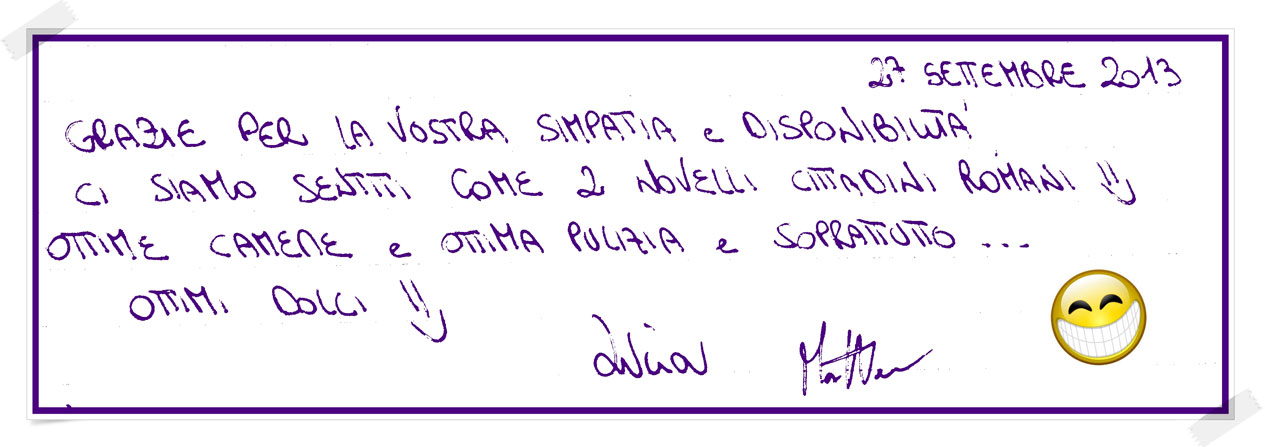 27 SETTEMBRE 2013
GRAZIE PER LA VOSTRA SIMPATIA e DISPONIBILITÀ
CI SIAMO SENTITI COME 2 NOVELLI CITTADINI ROMANI :)
OTTIME CAMERE e OTTIMA PULIZIA e SOPRATTUTTO ...
OTTIMI DOLCI :)
Livia Matteo